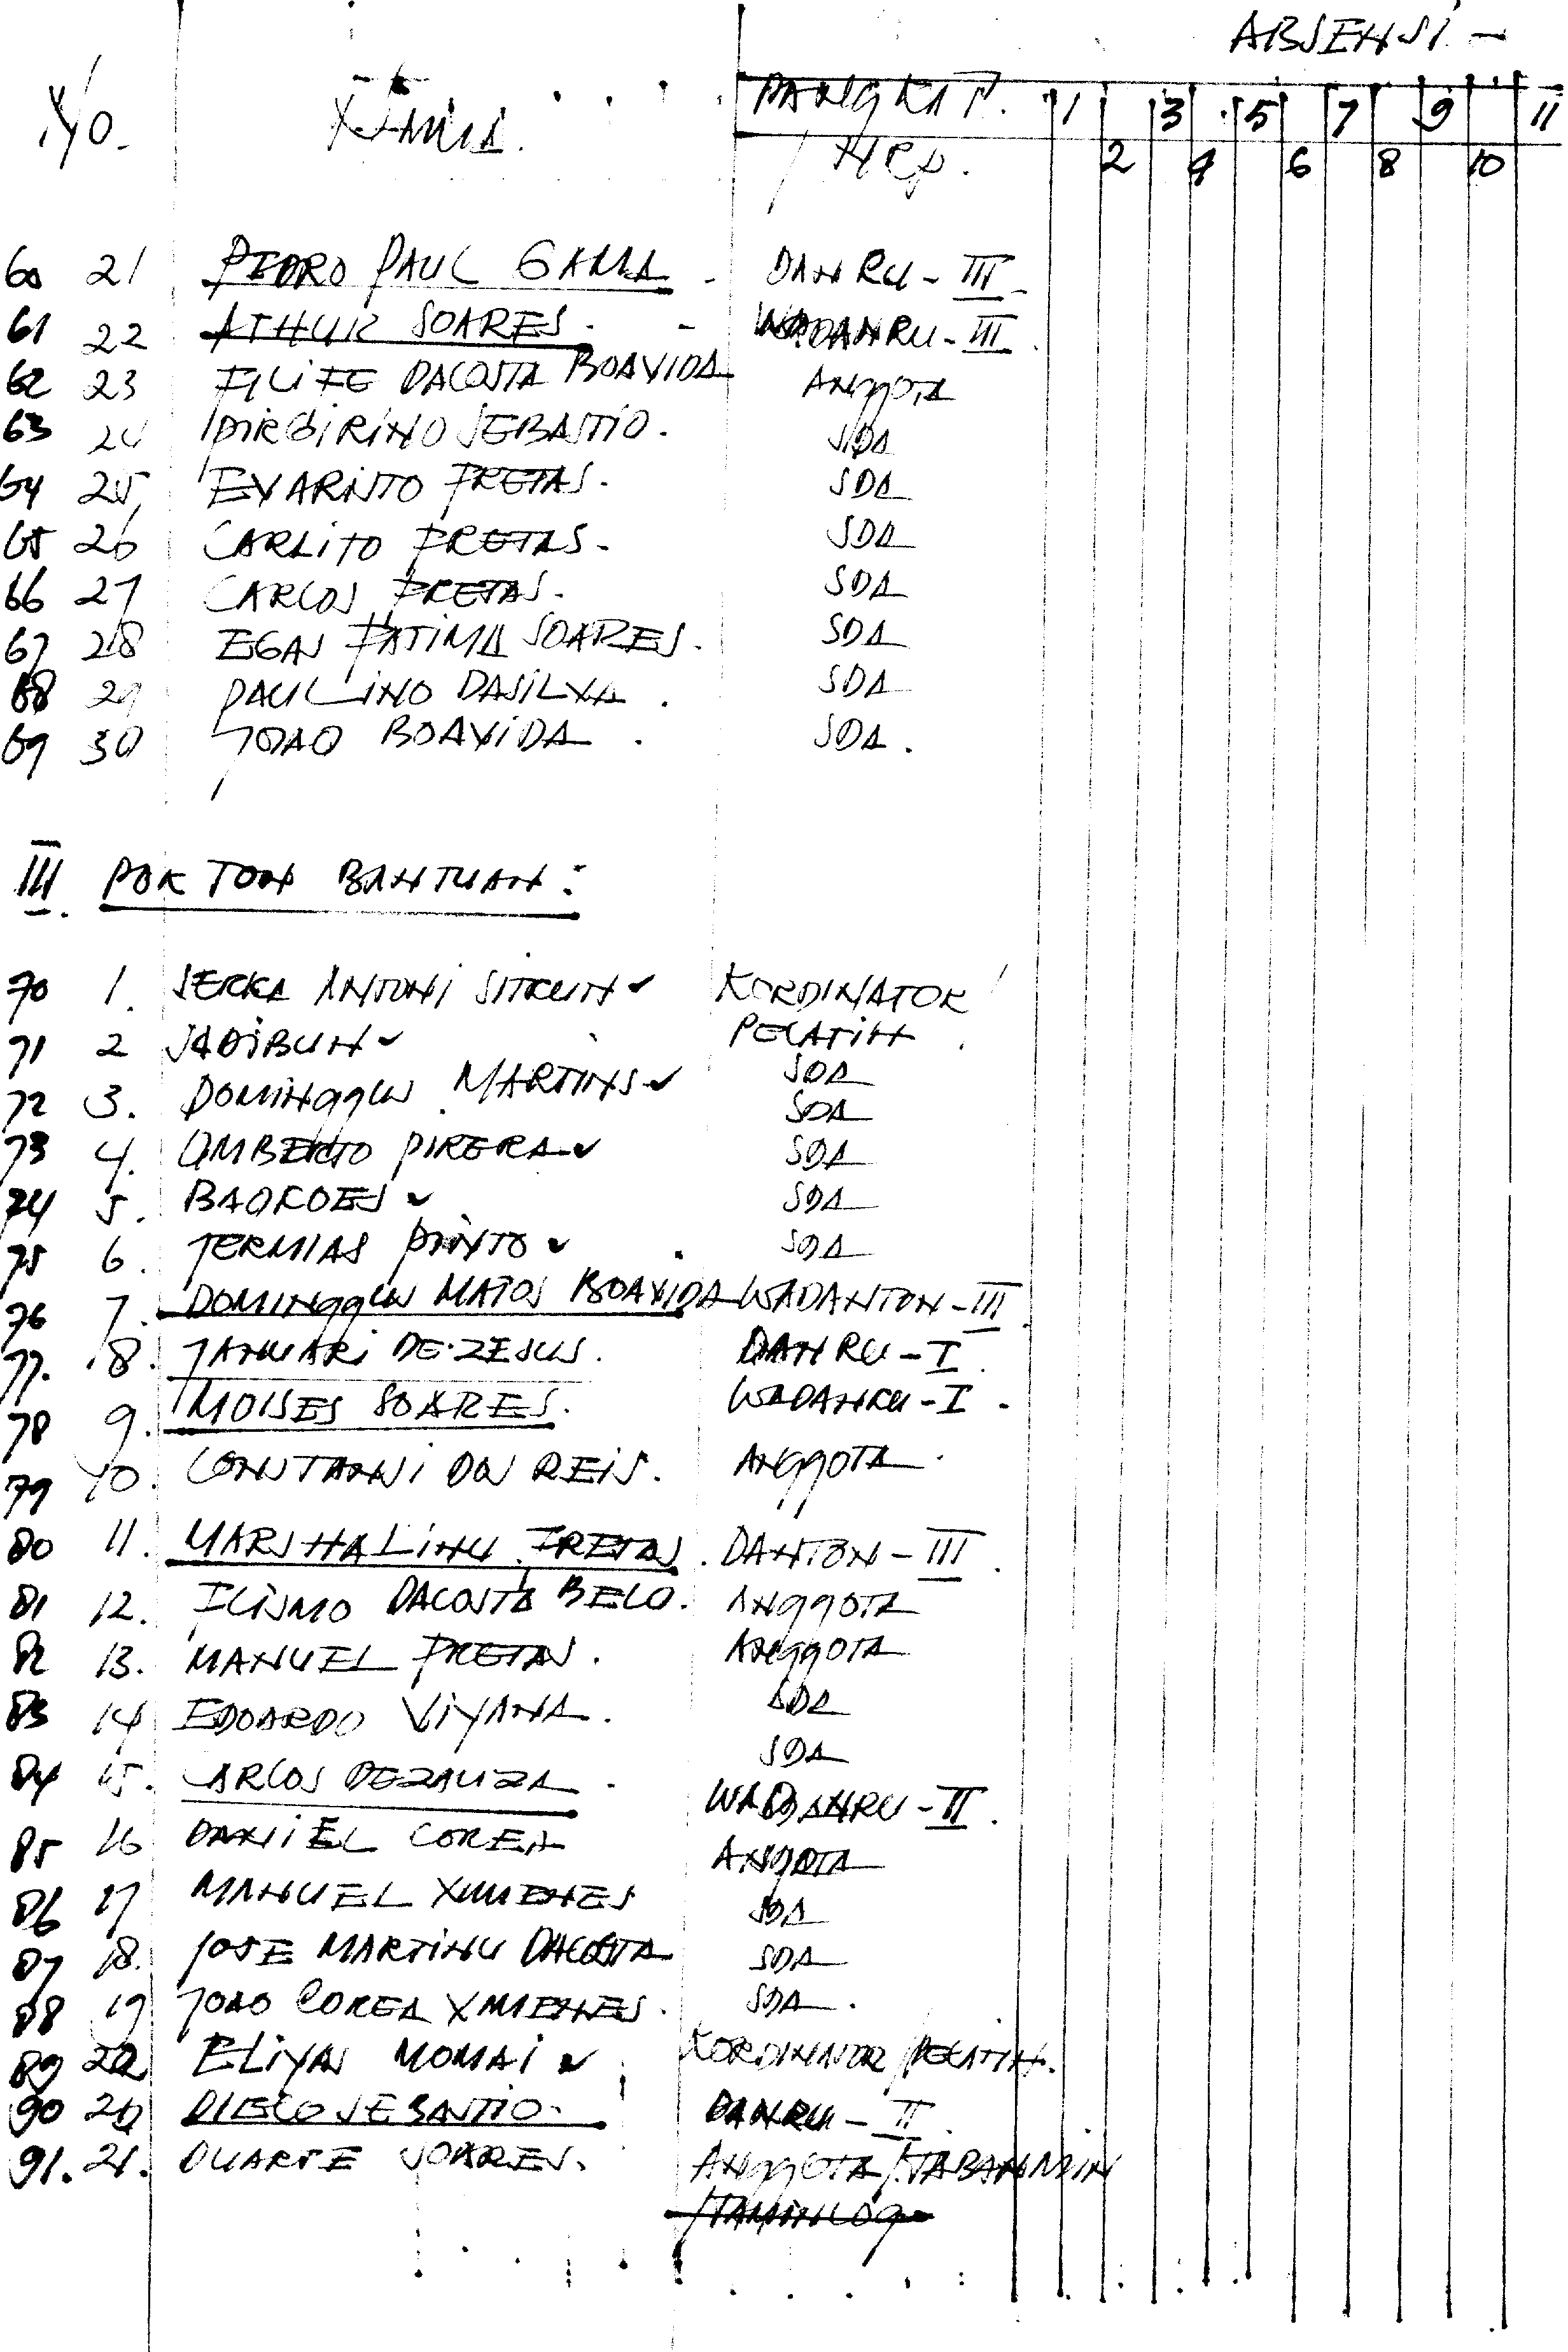 ABSENSI -
No. NAMA. PANGKAT. 1 3 5 7 9 11
NRP. 2 4 6 8 10
60 21 PEDRO PAUL GAMA - DANRU - III -
61 22 ATHUR SOARES. - WADANRU - III.
62 23 FILIFE DACOSTA BOAVIDA ANggOTA
63 24 SEBASTIO. SDA
64 25 EVARISTO FRETAS. SDA
65 26 CARLITO FRETAS. SDA
66 27 CARLOS FRETAS. SDA
67 28 EGAS FATIMA SOARES. SDA
68 29 PAULINO DASILVA. SDA
69 30 JOAO BOAVIDA. SDA.
III. TON BANTUAN:
70 1. SERKA ANTONI ✓ KORDINATOR
71 2 ✓ PELATIH
72 3. DOMINggUS MARTINS ✓ SDA
SDA
73 4. UMBERTO PIRERA ✓ SDA
74 5. ✓ SDA
75 6. JERMIAS PINTO ✓ SDA
76 7. DOMINggUS MATOS BOAVIDA WADANTON - III.
77. 8. JANUARI DE. ZESUS. DANRU - I.
78 9. MOISES SOARES. WADANRU - I.
79 10. DOS REIS. ANggOTA.
80 11. MARSHALINU FRETAS. DANTON - III.
81 12. DACOSTA BELO. ANggOTA
82 13. MANUEL FRETAS. ANggOTA
83 14 EDOARDO VIYANA. SDA
SDA
84 15. CARLOS DEZAUZA. WADANRU - II.
85 16 DANIEL COREA ANgOTA
86 17 MANUEL XIMENES SDA
87 18. JOSE MARTINU DACOSTA SDA
88 19 JOAO COREA XMIENES. SDA.
89 20 ELIYAS MOMAI ✓ KORDINATOR/PELATIH.
90 20 DIEGO SEBASTIO. DANRU - II.
91. 21. DUARTE SOARES. ANggOTA/TABANMIN